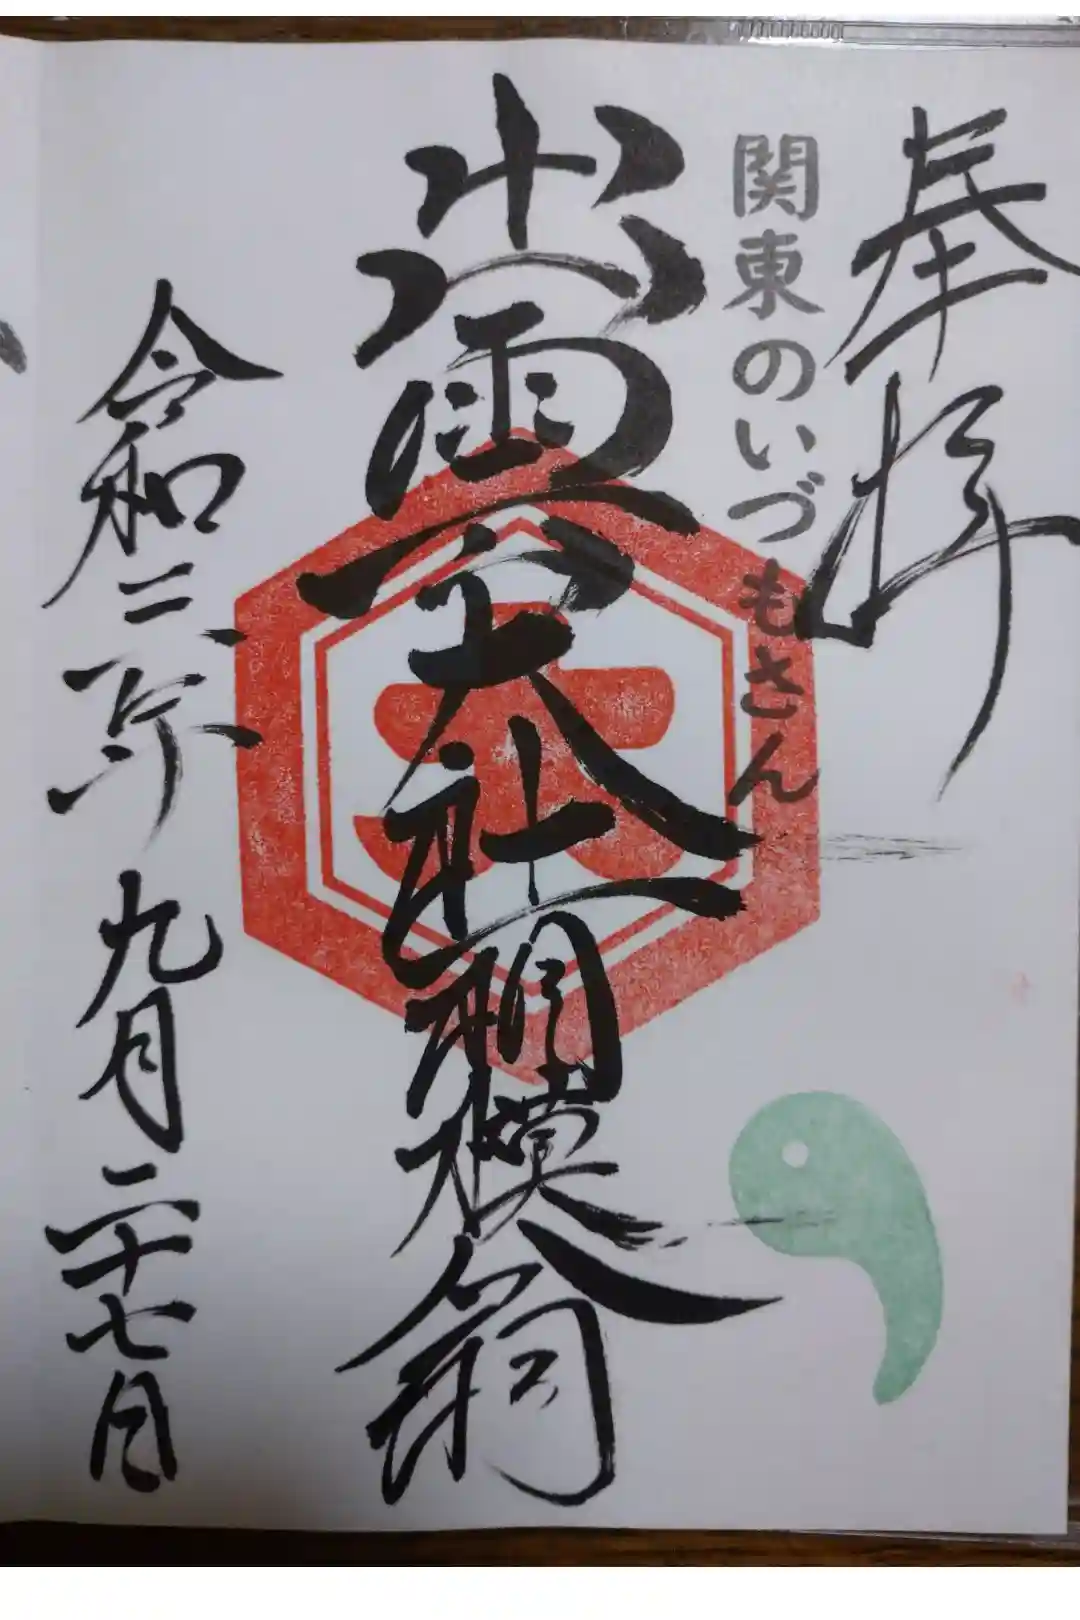 奉拝
関東のいづもさん
出雲大社相模分祠
令和二年九月二十七日
大